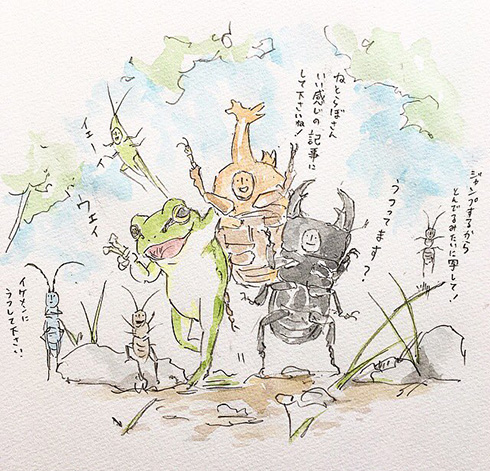 ジャンプするから
とんでるみたいに写して！
ねとらぼさん
いい感じの記事に
して下さいね！
うつってます？
イェーイ
ウェイ
イケメンに
うつして下さい